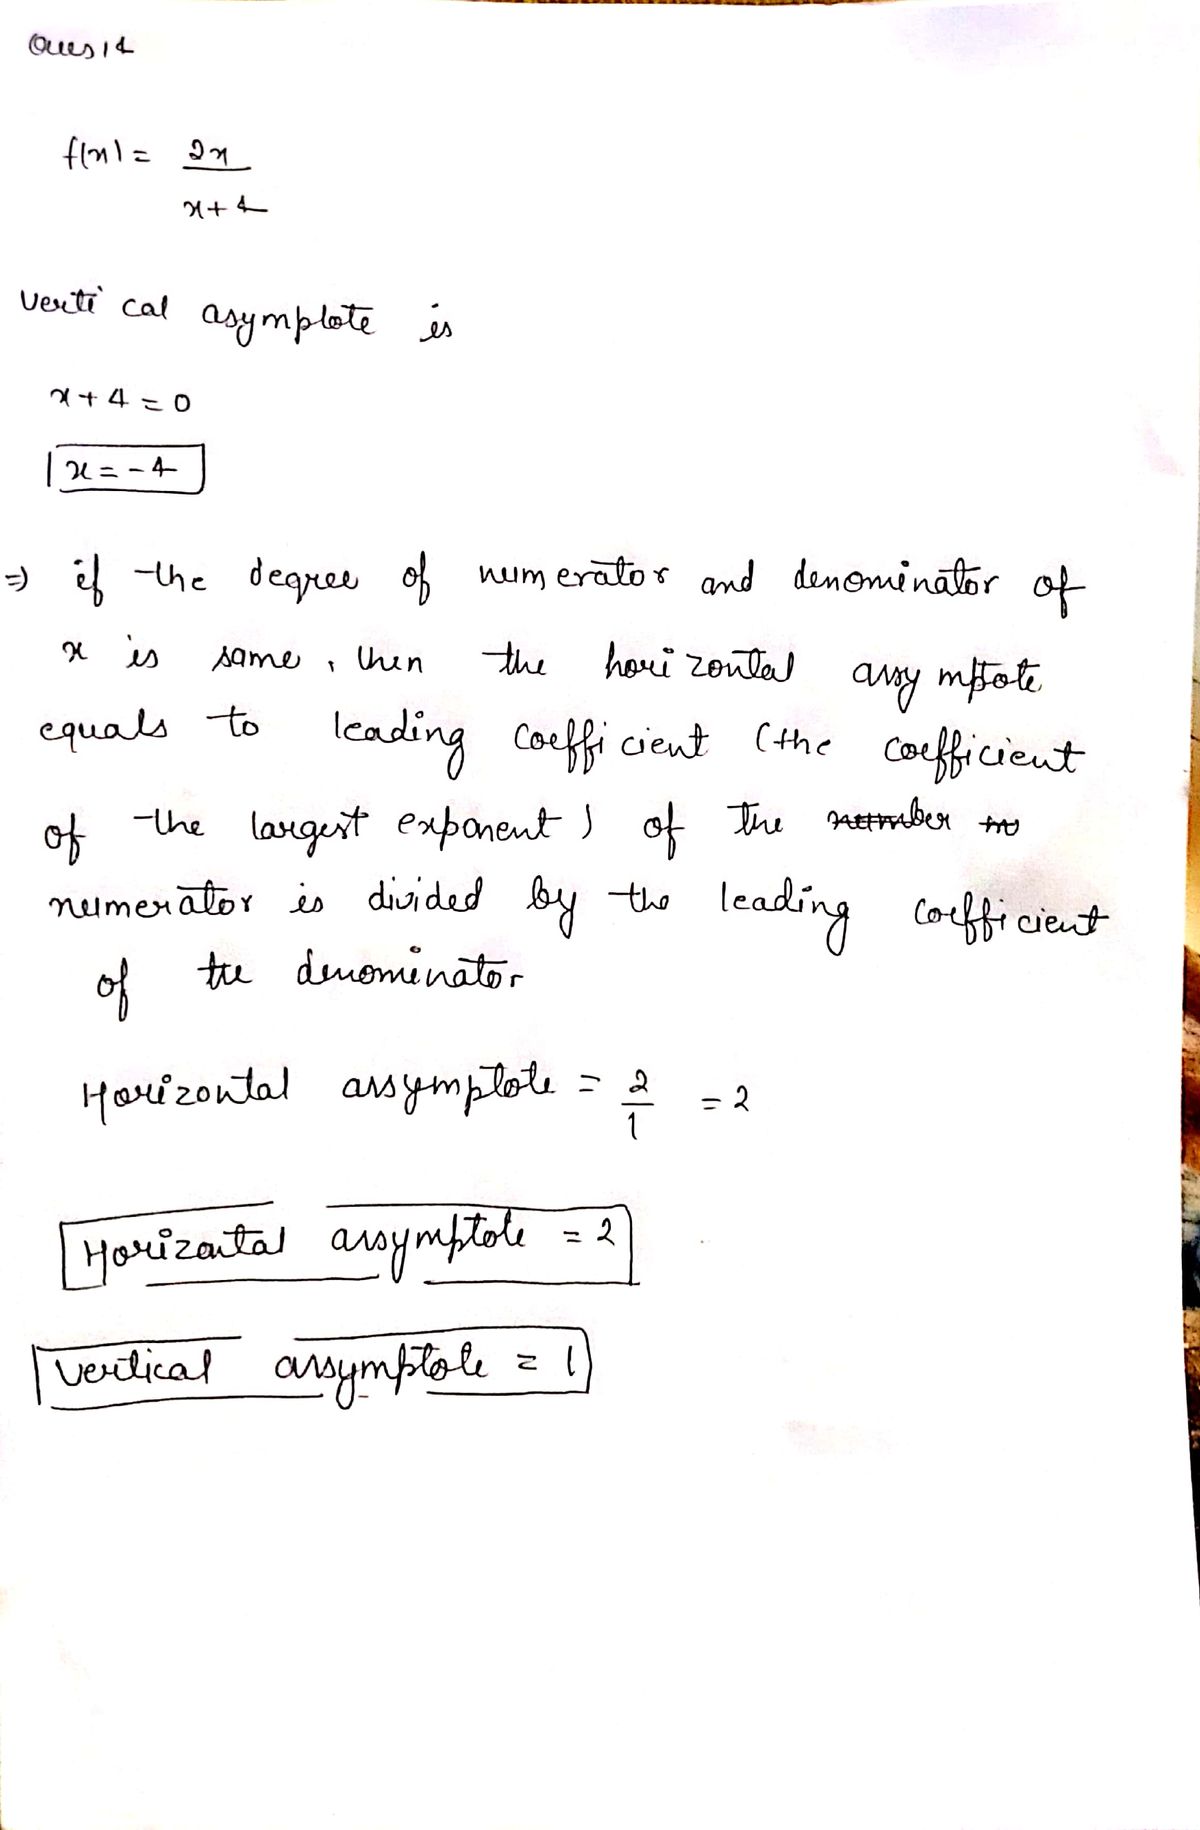 Ques 14
f(x) = 2x
x+4
Vertical asymptote is
x + 4 = 0
x = -4
⇒ if the degree of numerator and denominator of
x is same, then the horizontal assymptote
equals to leading coefficient (the coefficient
of the largest exponent) of the number
numerator is divided by the leading coefficient
of the denominator
Horizontal assymptote = 2/1 = 2
Horizontal assymptote = 2
Vertical assymptote = 1